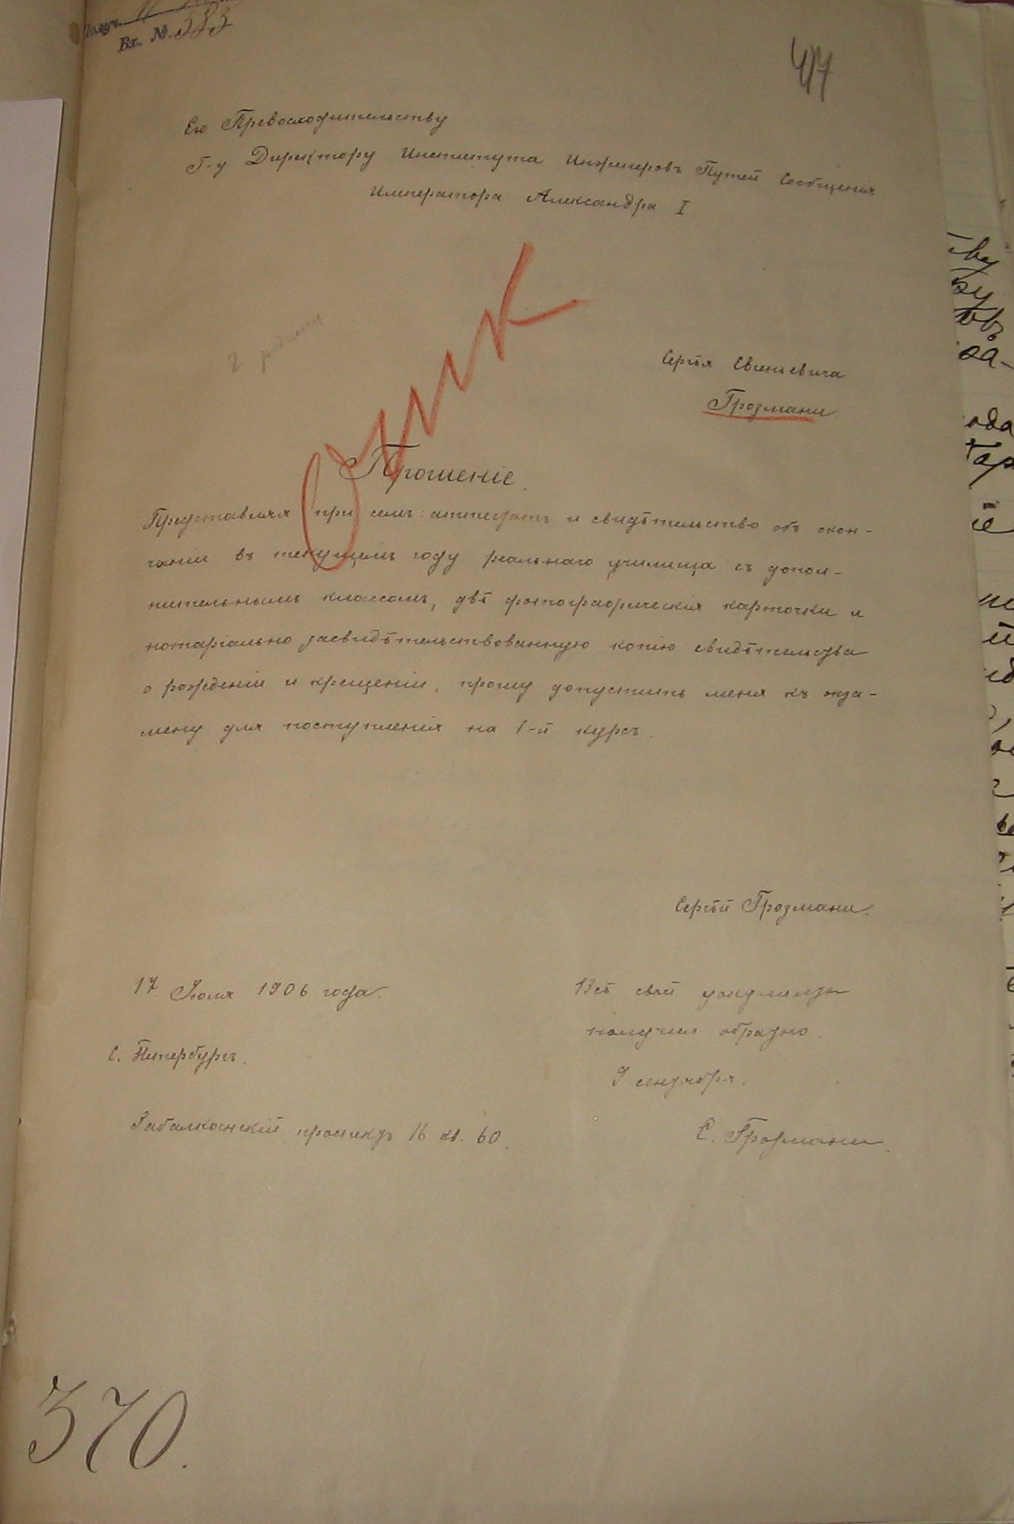 Вх. № 383
47
Его Превосходительству
Г-у Директору Института Инженеровъ Путей Сообщенія
Императора Александра I
Сергѣя Евгеніевича
Грозмани
Прошеніе.
Представляя при семъ аттестатъ и свидѣтельство объ окон-
чаніи въ текущемъ году реальнаго училища съ допол-
нительнымъ классомъ, двѣ фотографическія карточки и
нотаріально засвидѣтельствованную копію свидѣтельства
о рожденіи и крещеніи, прошу допустить меня къ экза-
мену для поступленія на 1-й курсъ.
Сергѣй Грозмани.
17 Іюля 1906 года.
Всѣ свои документы
получилъ обратно.
С. Петербургъ.
9 сентября.
Забалканскій проспектъ 16 кв. 60.
С. Грозмани.
370.